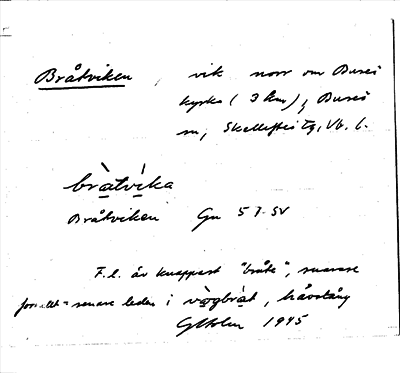 Bråtviken, vik norr om Bureå
kyrka (3 km), Bureå
sn, Skellefteå tg, Vb. l.
bràtvìka
Bråtviken Gn 57. SV
F.l. är knappast "bråte", snarare
= senare leden i vægbràt, håvstång
1945